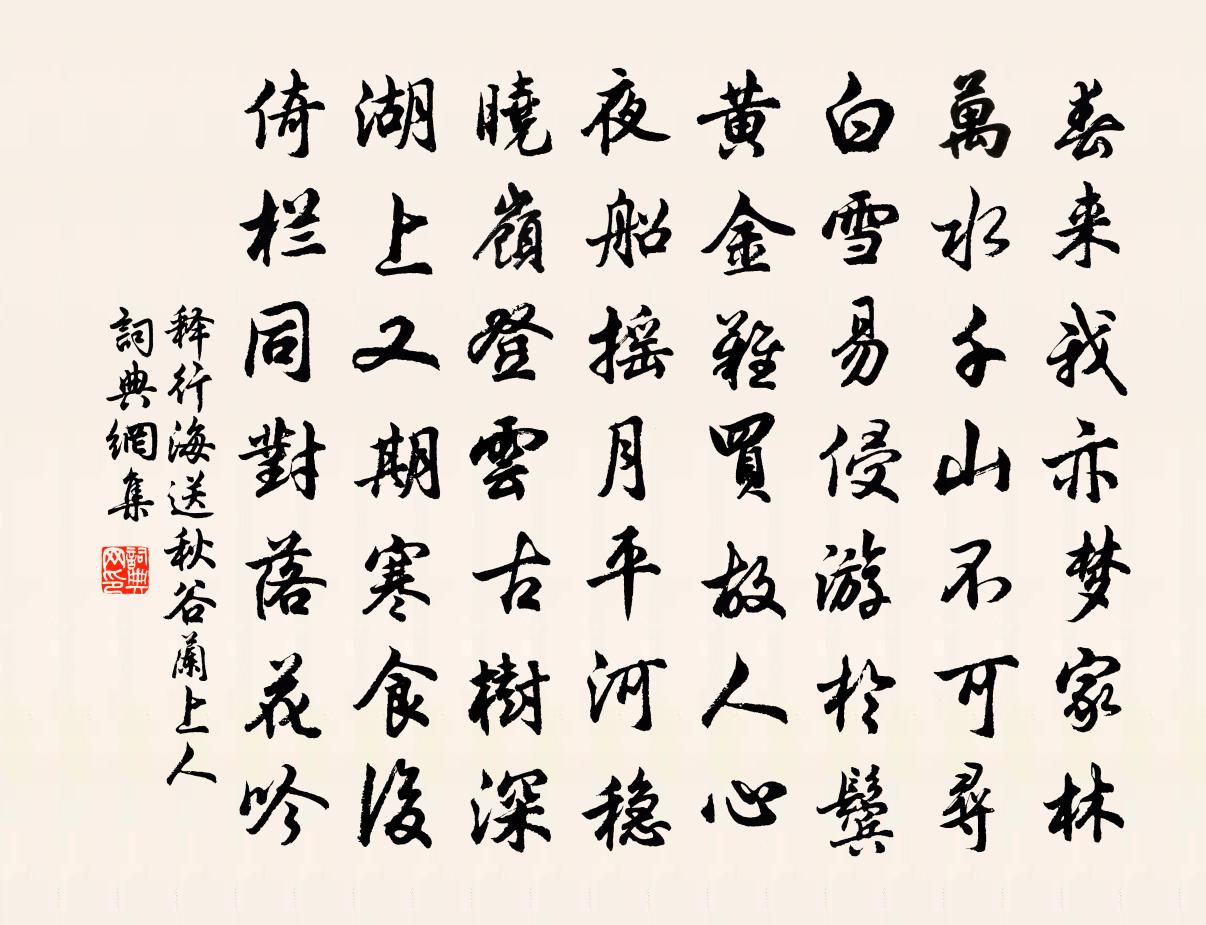 春来我亦梦家林
萬水千山不可尋
白雪易侵游於鬢
黄金難買故人心
夜船摇月平河穏
曉嶺登雲古樹深
湖上又期寒食後
倚栏同對落花吟
释行海送秋谷蘭上人
詞典網集
詞典
网印